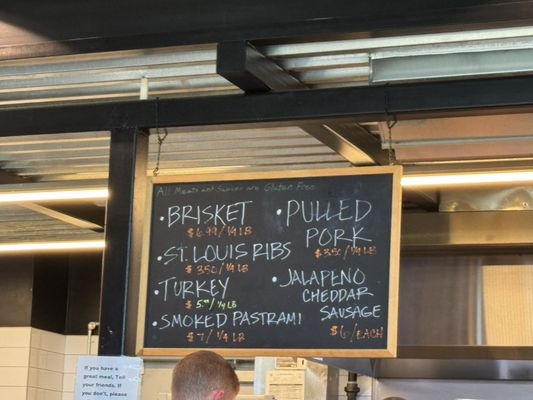 All Meats and Sauces are Gluten Free
• BRISKET
$6.99/¼ LB
• ST. LOUIS RIBS
$3.50/¼ LB
• TURKEY
$5.⁹⁹/¼ LB
• SMOKED PASTRAMI
$7/¼ LB
• PULLED
PORK
$3.50/¼ LB
• JALAPENO
CHEDDAR
SAUSAGE
$6/EACH
If you have
a great meal, Tell
your friends. If
you don't, please